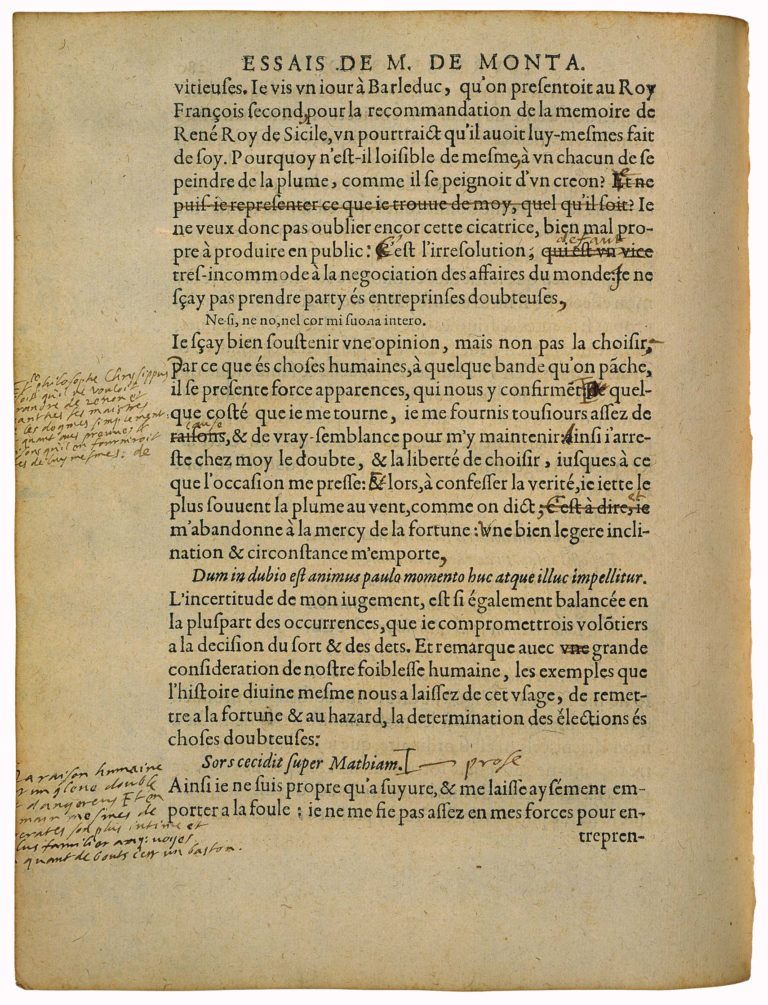 ESSAIS DE M. DE MONTA.
vitieuses. Ie vis vn iour à Barleduc, qu'on presentoit au Roy
François second, pour la recommandation de la memoire de
René Roy de Sicile, vn pourtraict qu'il auoit luy-mesmes fait
de soy. Pourquoy n'est-il loisible de mesme, à vn chacun de se
peindre de la plume, comme il se peignoit d'vn creon? Et ne
puis-ie representer ce que ie trouue de moy, quel qu'il soit? Ie
ne veux donc pas oublier encor cette cicatrice, bien mal pro-
defaut
pre à produire en public: C'est l'irresolution; qui est vn vice
tres-incommode à la negociation des affaires du monde: Ie ne
sçay pas prendre party és entreprinses doubteuses,
Ne si, ne no, nel cor mi suona intero.
Ie sçay bien soustenir vne opinion, mais non pas la choisir,
Par ce que és choses humaines, à quelque bande qu'on pãche,
il se presente force apparences, qui nous y confirmẽt De quel-
que costé que ie me tourne, ie me fournis tousiours assez de
cause
raisons, & de vray-semblance pour m'y maintenir: Ainsi i'arre-
ste chez moy le doubte, & la liberté de choisir, iusques à ce
que l'occasion me presse: & lors, à confesser la verité, ie iette le
plus souuent la plume au vent, comme on dict; C'est à dire, ie
et
m'abandonne à la mercy de la fortune: Vne bien legere incli-
nation & circonstance m'emporte,
Dum in dubio est animus paulo momento huc atque illuc impellitur.
L'incertitude de mon iugement, est si également balancée en
la pluspart des occurrences, que ie compromettrois volõtiers
a la decision du sort & des dets. Et remarque auec vne grande
consideration de nostre foiblesse humaine, les exemples que
l'histoire diuine mesme nous a laissez de cet vsage, de remet-
tre a la fortune & au hazard, la determination des élections és
choses doubteuses:
Sors cecidit super Mathiam. prose
Ainsi ie ne suis propre qu'a suyure, & me laisse aysément em-
porter a la foule: ie ne me fie pas assez en mes forces pour en-
trepren-
philosophe Chrysippus
qu'il ne vouloit
de zenon et
ses maistres
les dogmes simplement
quant aus preuves
qu'il en fourniroit
de luy mesmes: de
la raison humaine
glaive double
dangereus Et en
main mesmes de
son plus intime et
familier amy: voyes
quant de bouts c'est un baston.